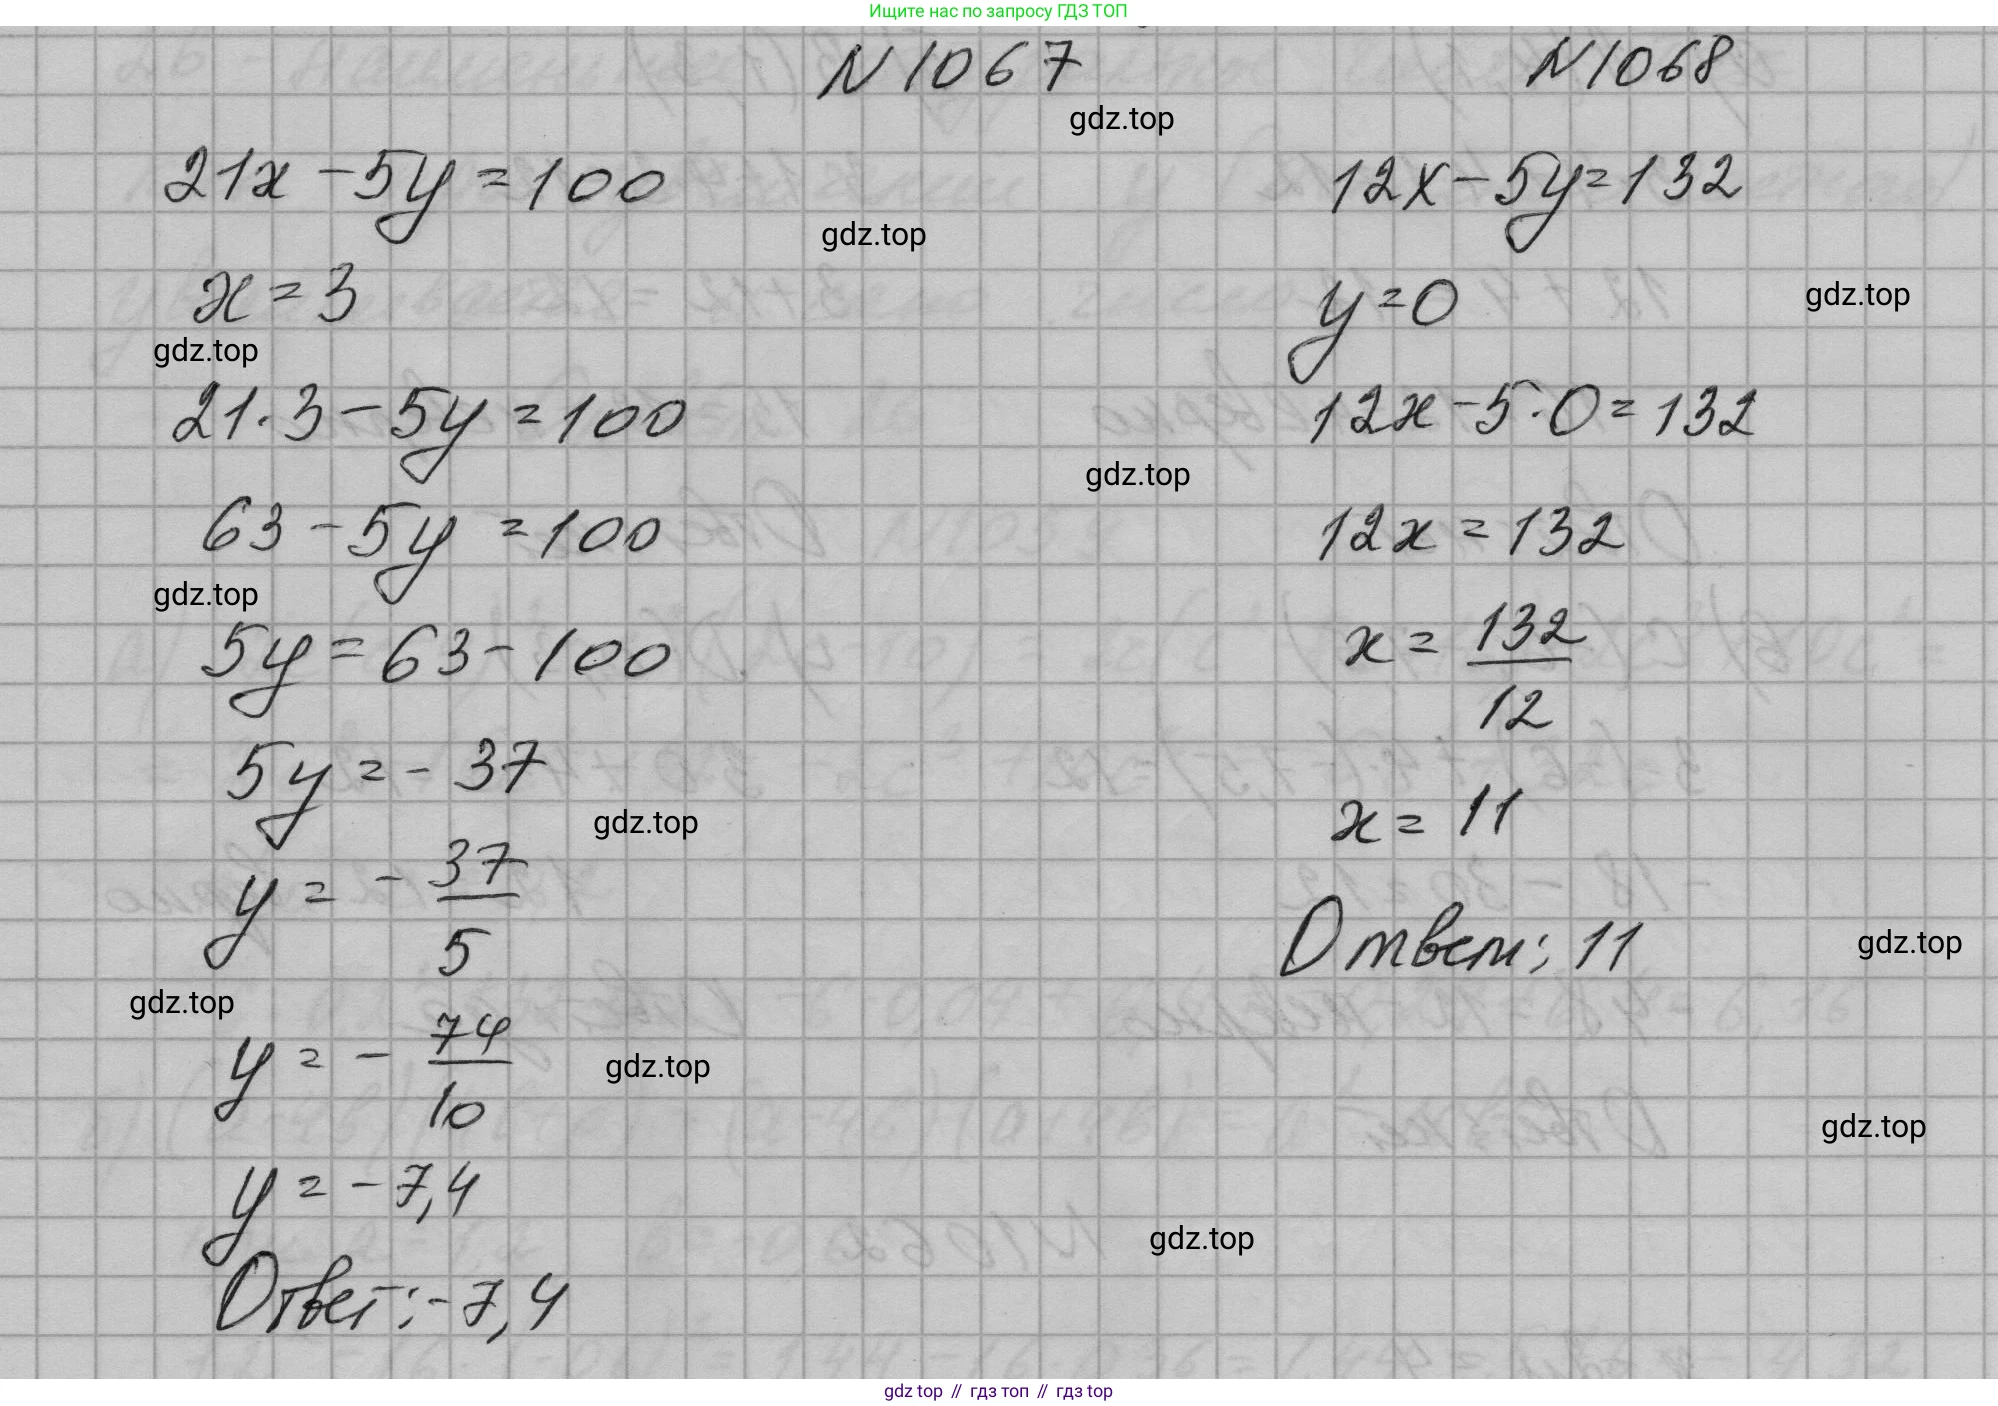 Ищите нас по запросу ГДЗ ТОП
N1067
gdz.top
21x - 5y = 100
gdz.top
x = 3
gdz.top
21·3 - 5y = 100
63 - 5y = 100
gdz.top
5y = 63 - 100
5y = - 37
gdz.top
y = - 37/5
gdz.top
y = - 74/10
gdz.top
y = - 7,4
Ответ: -7,4
N1068
12x - 5y = 132
gdz.top
y = 0
12x - 5·0 = 132
gdz.top
12x = 132
x = 132/12
x = 11
Ответ: 11
gdz.top
gdz.top
gdz.top
gdz top // гдз топ // гдз top